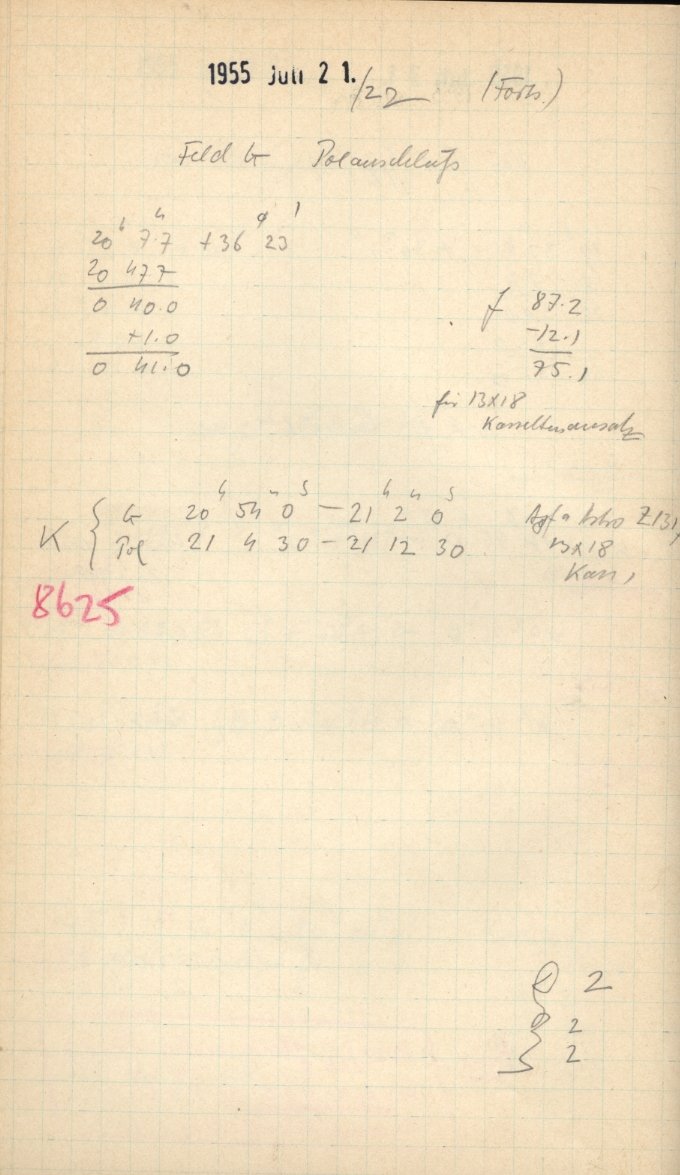 1955 Juli 21./22 (Forts.)
Feld G Polanschluß
20ʰ 7.7ᵐ +36° 23'
20 47.7
0 40.0
+1.0
0 41.0
f 87.2
-12.1
75.1
für 13x18
Kassettenansatz
K { G 20ʰ 54ᵐ 0ˢ – 21ʰ 2ᵐ 0ˢ Agfa Astro Z 131,
Pol 21 4 30 – 21 12 30 13x18
Kass,
8625
2
2
2